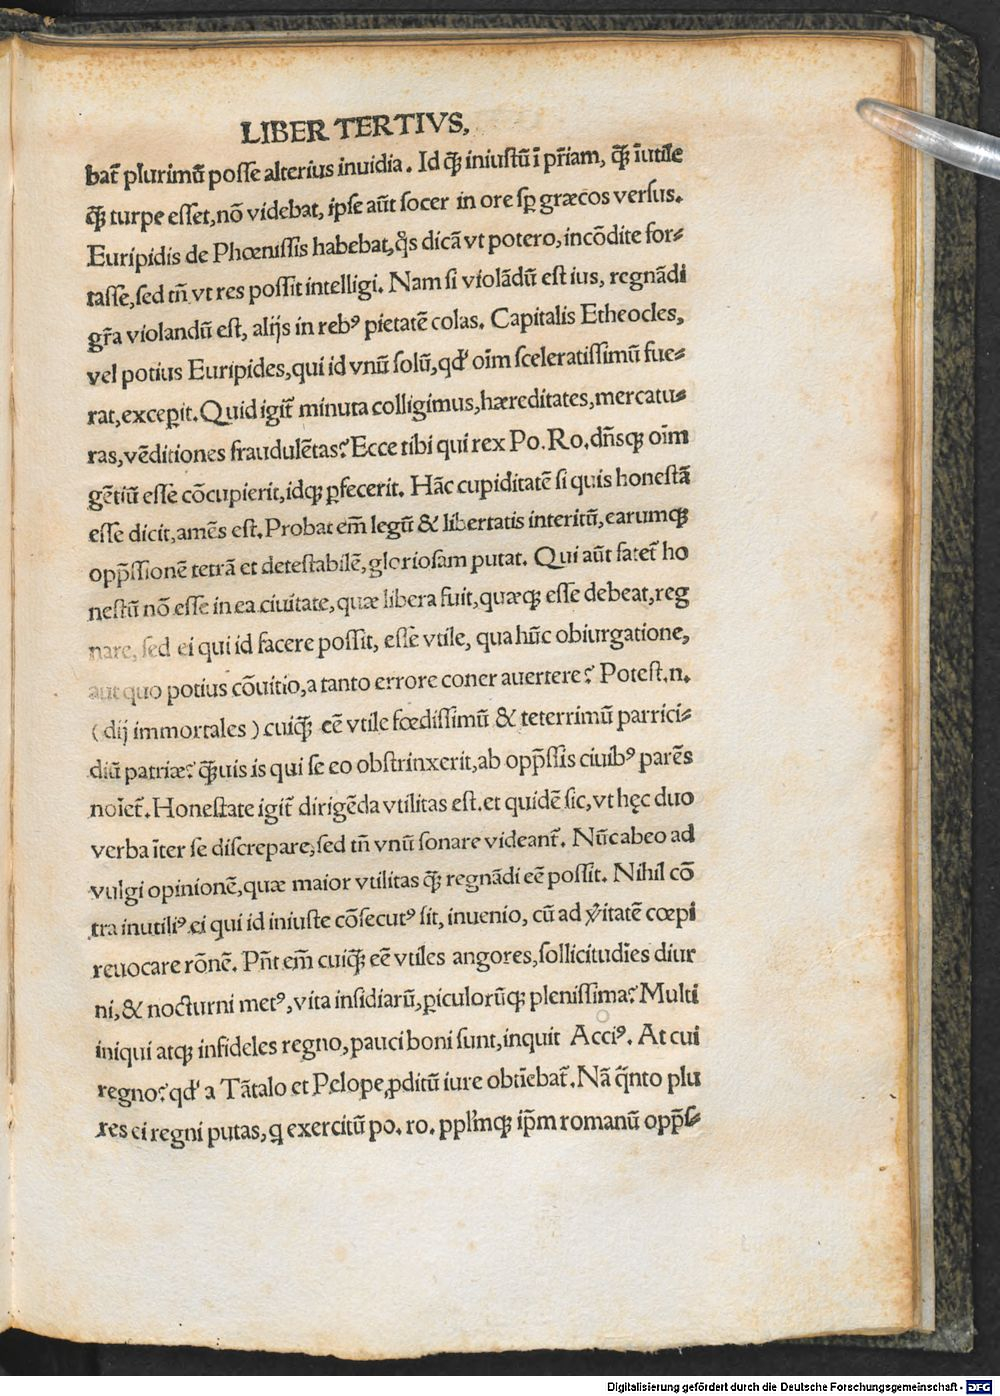 LIBER TERTIVS,
bat̃ plurimū posse alterius inuidia. Id q̃ꝫ iniustū ĩ pr̃iam, q̃ꝫ ĩutile
q̃ꝫ turpe esset, nõ videbat, ipse aũt socer in ore sꝑ græcos versus.
Euripidis de Phœnissis habebat, q̊s dicã vt potero, incõdite for⸗
tasse, sed tñ vt res possit intelligi. Nam si violãdũ est ius, regnãdi
gr̃a violandũ est, alijs in rebꝰ pietatẽ colas. Capitalis Etheocles,
vel potius Euripides, qui id vnũ solũ, qd' oĩm sceleratissimũ fue⸗
rat, exceꝑit. Quid igit̃ minuta colligimus, hæreditates, mercatu⸗
ras, vẽditiones fraudulẽtas? Ecce tibi qui rex Po. Ro. dñsqꝫ oĩm
gẽtiũ esse cõcupierit, idqꝫ ꝑfecerit. Hãc cupiditatẽ si quis honestã
esse dicit, amẽs est. Probat em̃ legũ & libertatis interitũ, earumqꝫ
opp̃ssionẽ tetrã et detestabilẽ, gloriosam putat. Qui aũt fatet̃ ho
nestũ nõ esse in ea ciuitate, quæ libera fuit, quæqꝫ esse debeat, reg
nare, sed ei qui id facere possit, esse vtile, qua hũc obiurgatione,
aut quo potius cõuitio, a tanto errore coner auertere? Potest. n.
(dij immortales) cuiq̃ꝫ eẽ vtile fœdissimũ & teterrimũ parrici⸗
diũ patriæ? q̃ꝫuis is qui se eo obstrinxerit, ab opp̃ssis ciuibꝰ parẽs
noĩet̃. Honestate igit̃ dirigẽda vtilitas est. et quidẽ sic, vt hęc duo
verba ĩter se discrepare, sed tñ vnũ sonare videant̃. Nũc abeo ad
vulgi opinionẽ, quæ maior vtilitas q̃ꝫ regnãdi eẽ possit. Nihil cõ
tra inutiliꝰ ei qui id iniuste cõsecutꝰ sit, inuenio, cũ ad v̓itatẽ cœpi
reuocare rõnẽ. Pñt em̃ cuiq̃ꝫ eẽ vtiles angores, sollicitudĩes diur
ni, & nocturni metꝰ, vita insidiarũ, ꝑiculorũqꝫ plenissima? Multi
iniqui atqꝫ infideles regno, pauci boni sunt, inquit Acciꝰ. At cui
regno? qd' a Tãtalo et Pelope, ꝓditũ iure obtĩebat̃. Nã q̃nto plu
res ei regni putas, q exercitũ po. ro. ppl'mqꝫ ip̃m romanũ opp̃s⸗
Digitalisierung gefördert durch die Deutsche Forschungsgemeinschaft - DFG